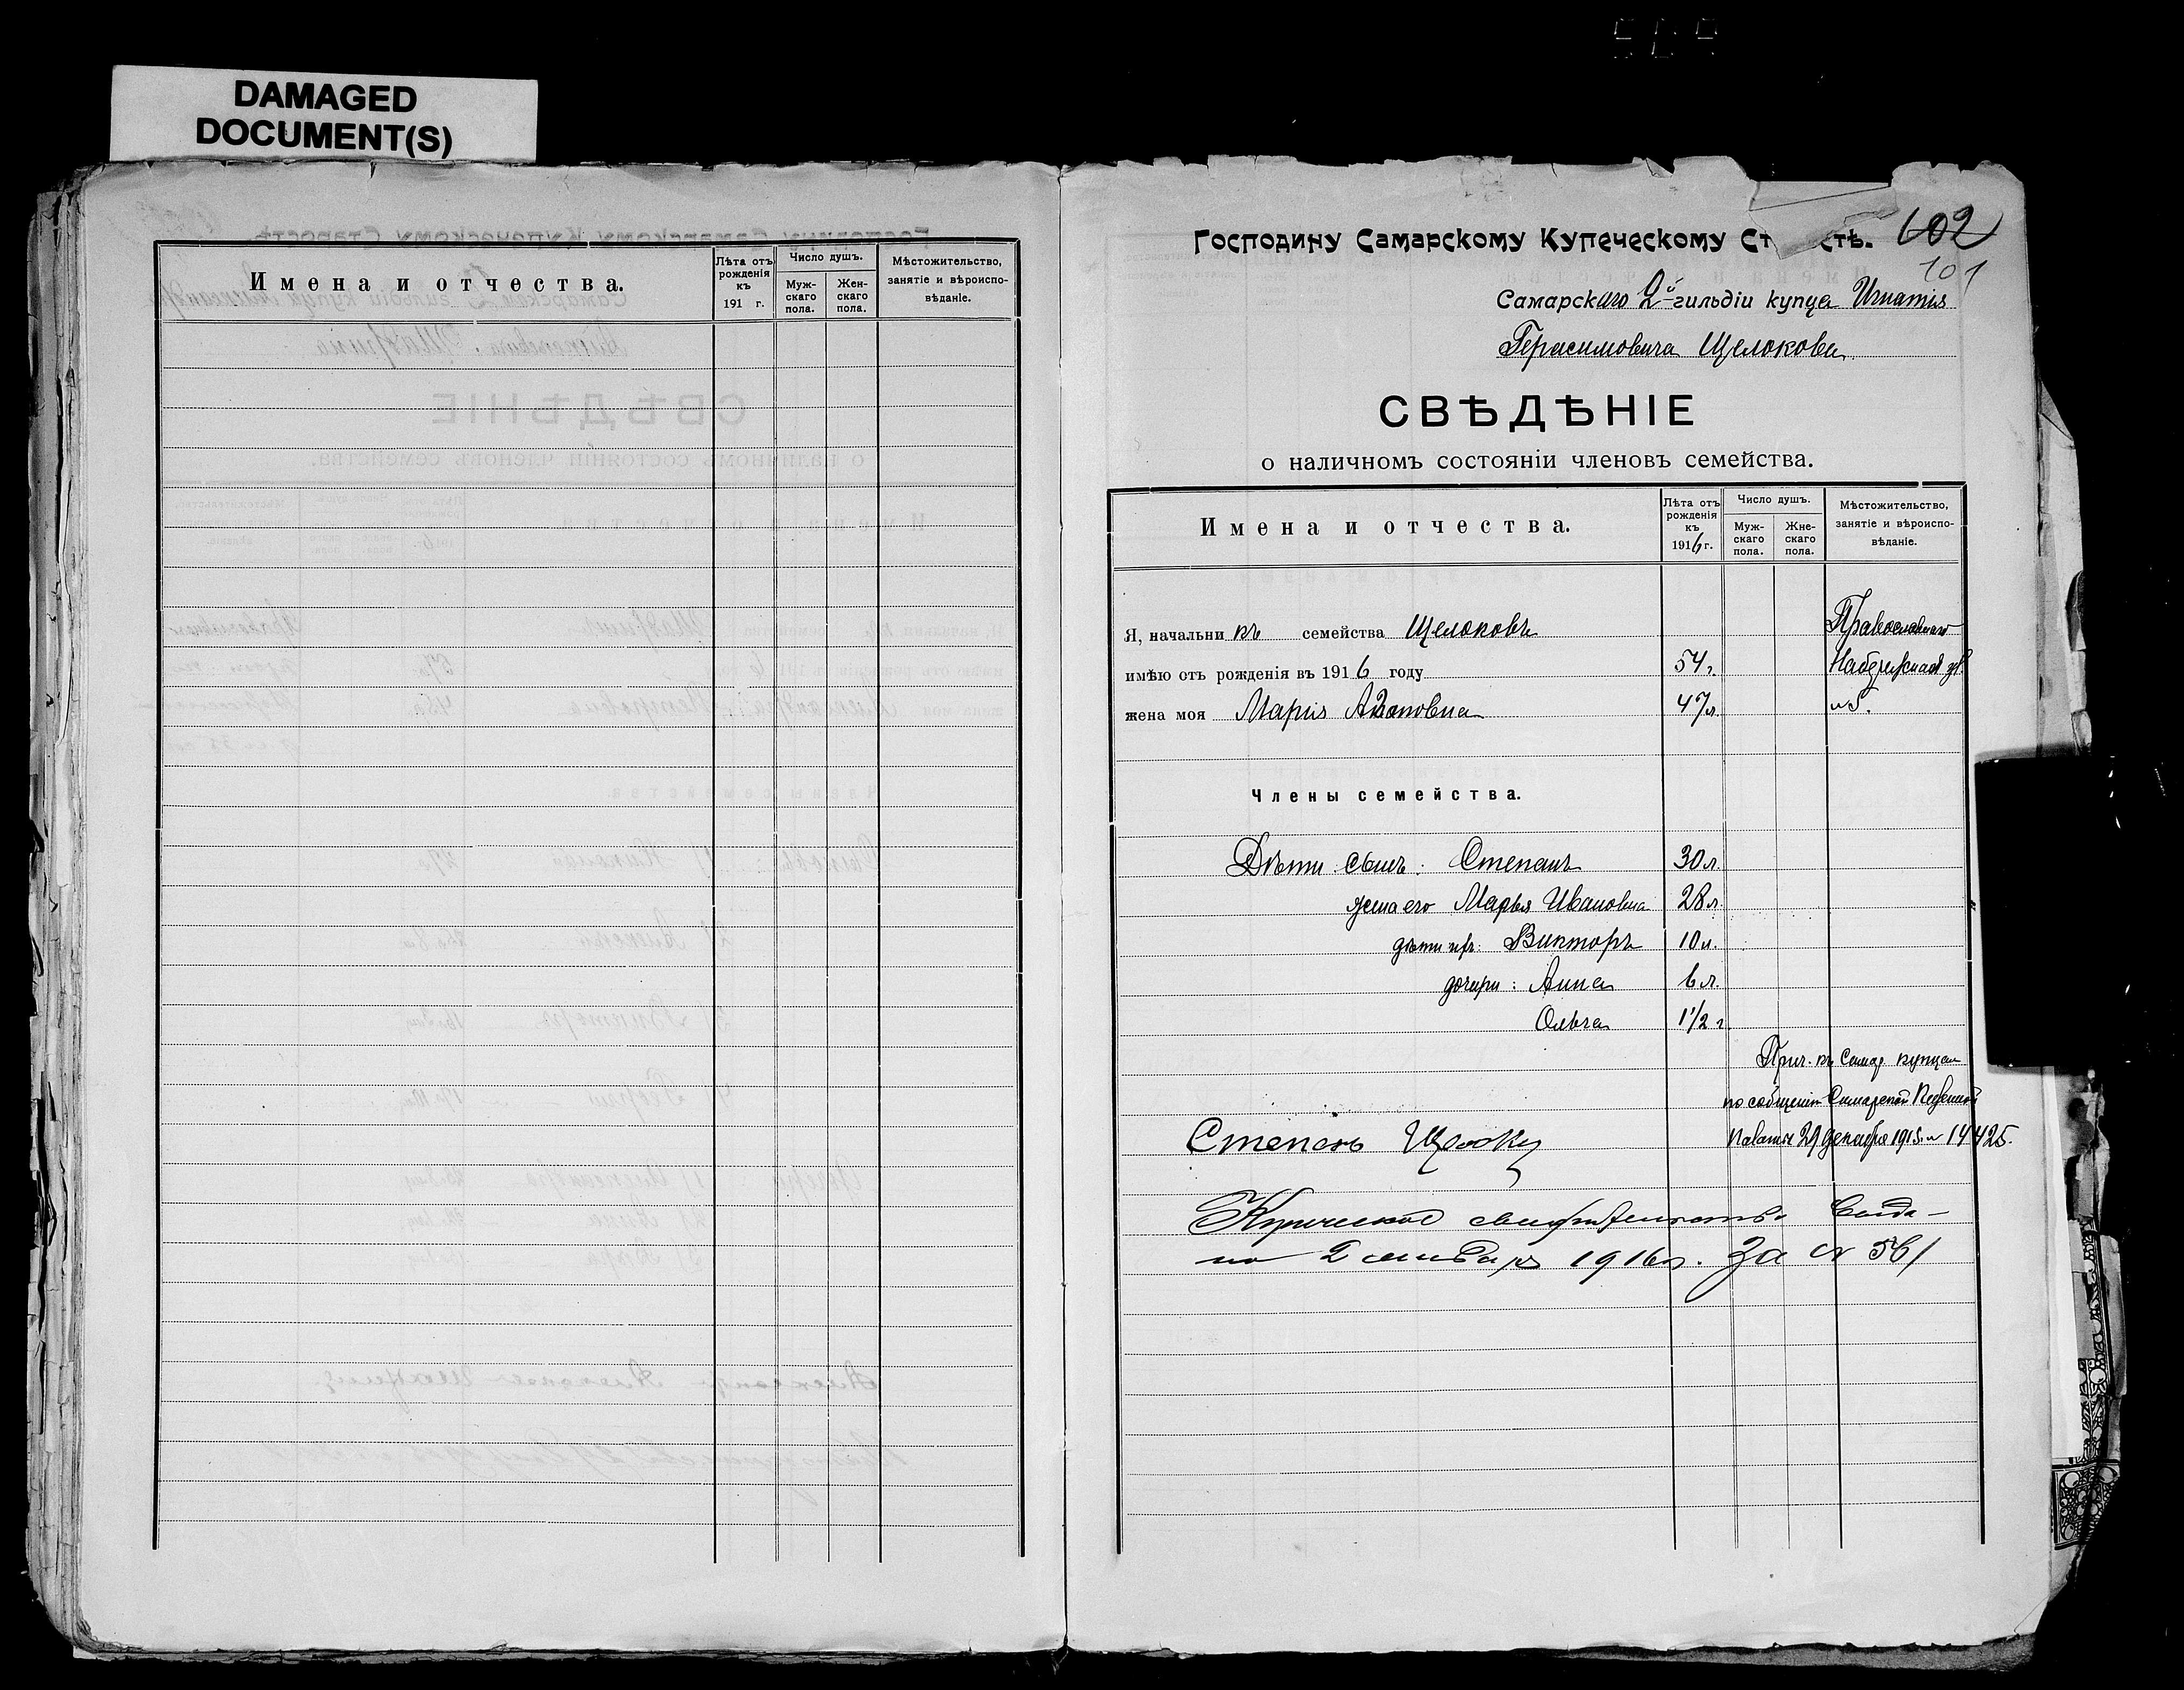 DAMAGED
DOCUMENT(S)
Имена и отчества.
Лѣта отъ рожденія къ 191 г.
Число душъ.
Муж-скаго пола.
Жен-скаго пола.
Мѣстожительство, занятіе и вѣроиспо-вѣданіе.
Господину Самарскому Купеческому Ст стѣ. 102
101
Самарскаго 2й гильдіи купца Игнатія
Герасимовича Щелокова
СВѢДѢНІЕ
о наличномъ состояніи членовъ семейства.
Имена и отчества.
Лѣта отъ рожденія къ 1916 г.
Число душъ.
Муж-скаго пола.
Жне-скаго пола.
Мѣстожительство, занятіе и вѣроиспо-вѣданіе.
Я, начальникъ семейства Щелоковъ Православнаго
имѣю отъ рожденія въ 1916 году 54 г. Набережная
жена моя Марія 47 л.
Члены семейства.
Дѣти: сынъ: Степанъ 30 л.
жена его Марья Ивановна 28 л.
дѣти ихъ: Викторъ 10 л.
дочери: Анна 6 л.
Ольга 1 1/2 г.
Прич. къ Самар. купцам
по сообщенію Самарской Казенной
Палаты 29 декабря 1915 г. № 14425.
Степанъ Щелоков
Купеческое свидѣтельство выда-
но 2 января 1916 г. За № 561